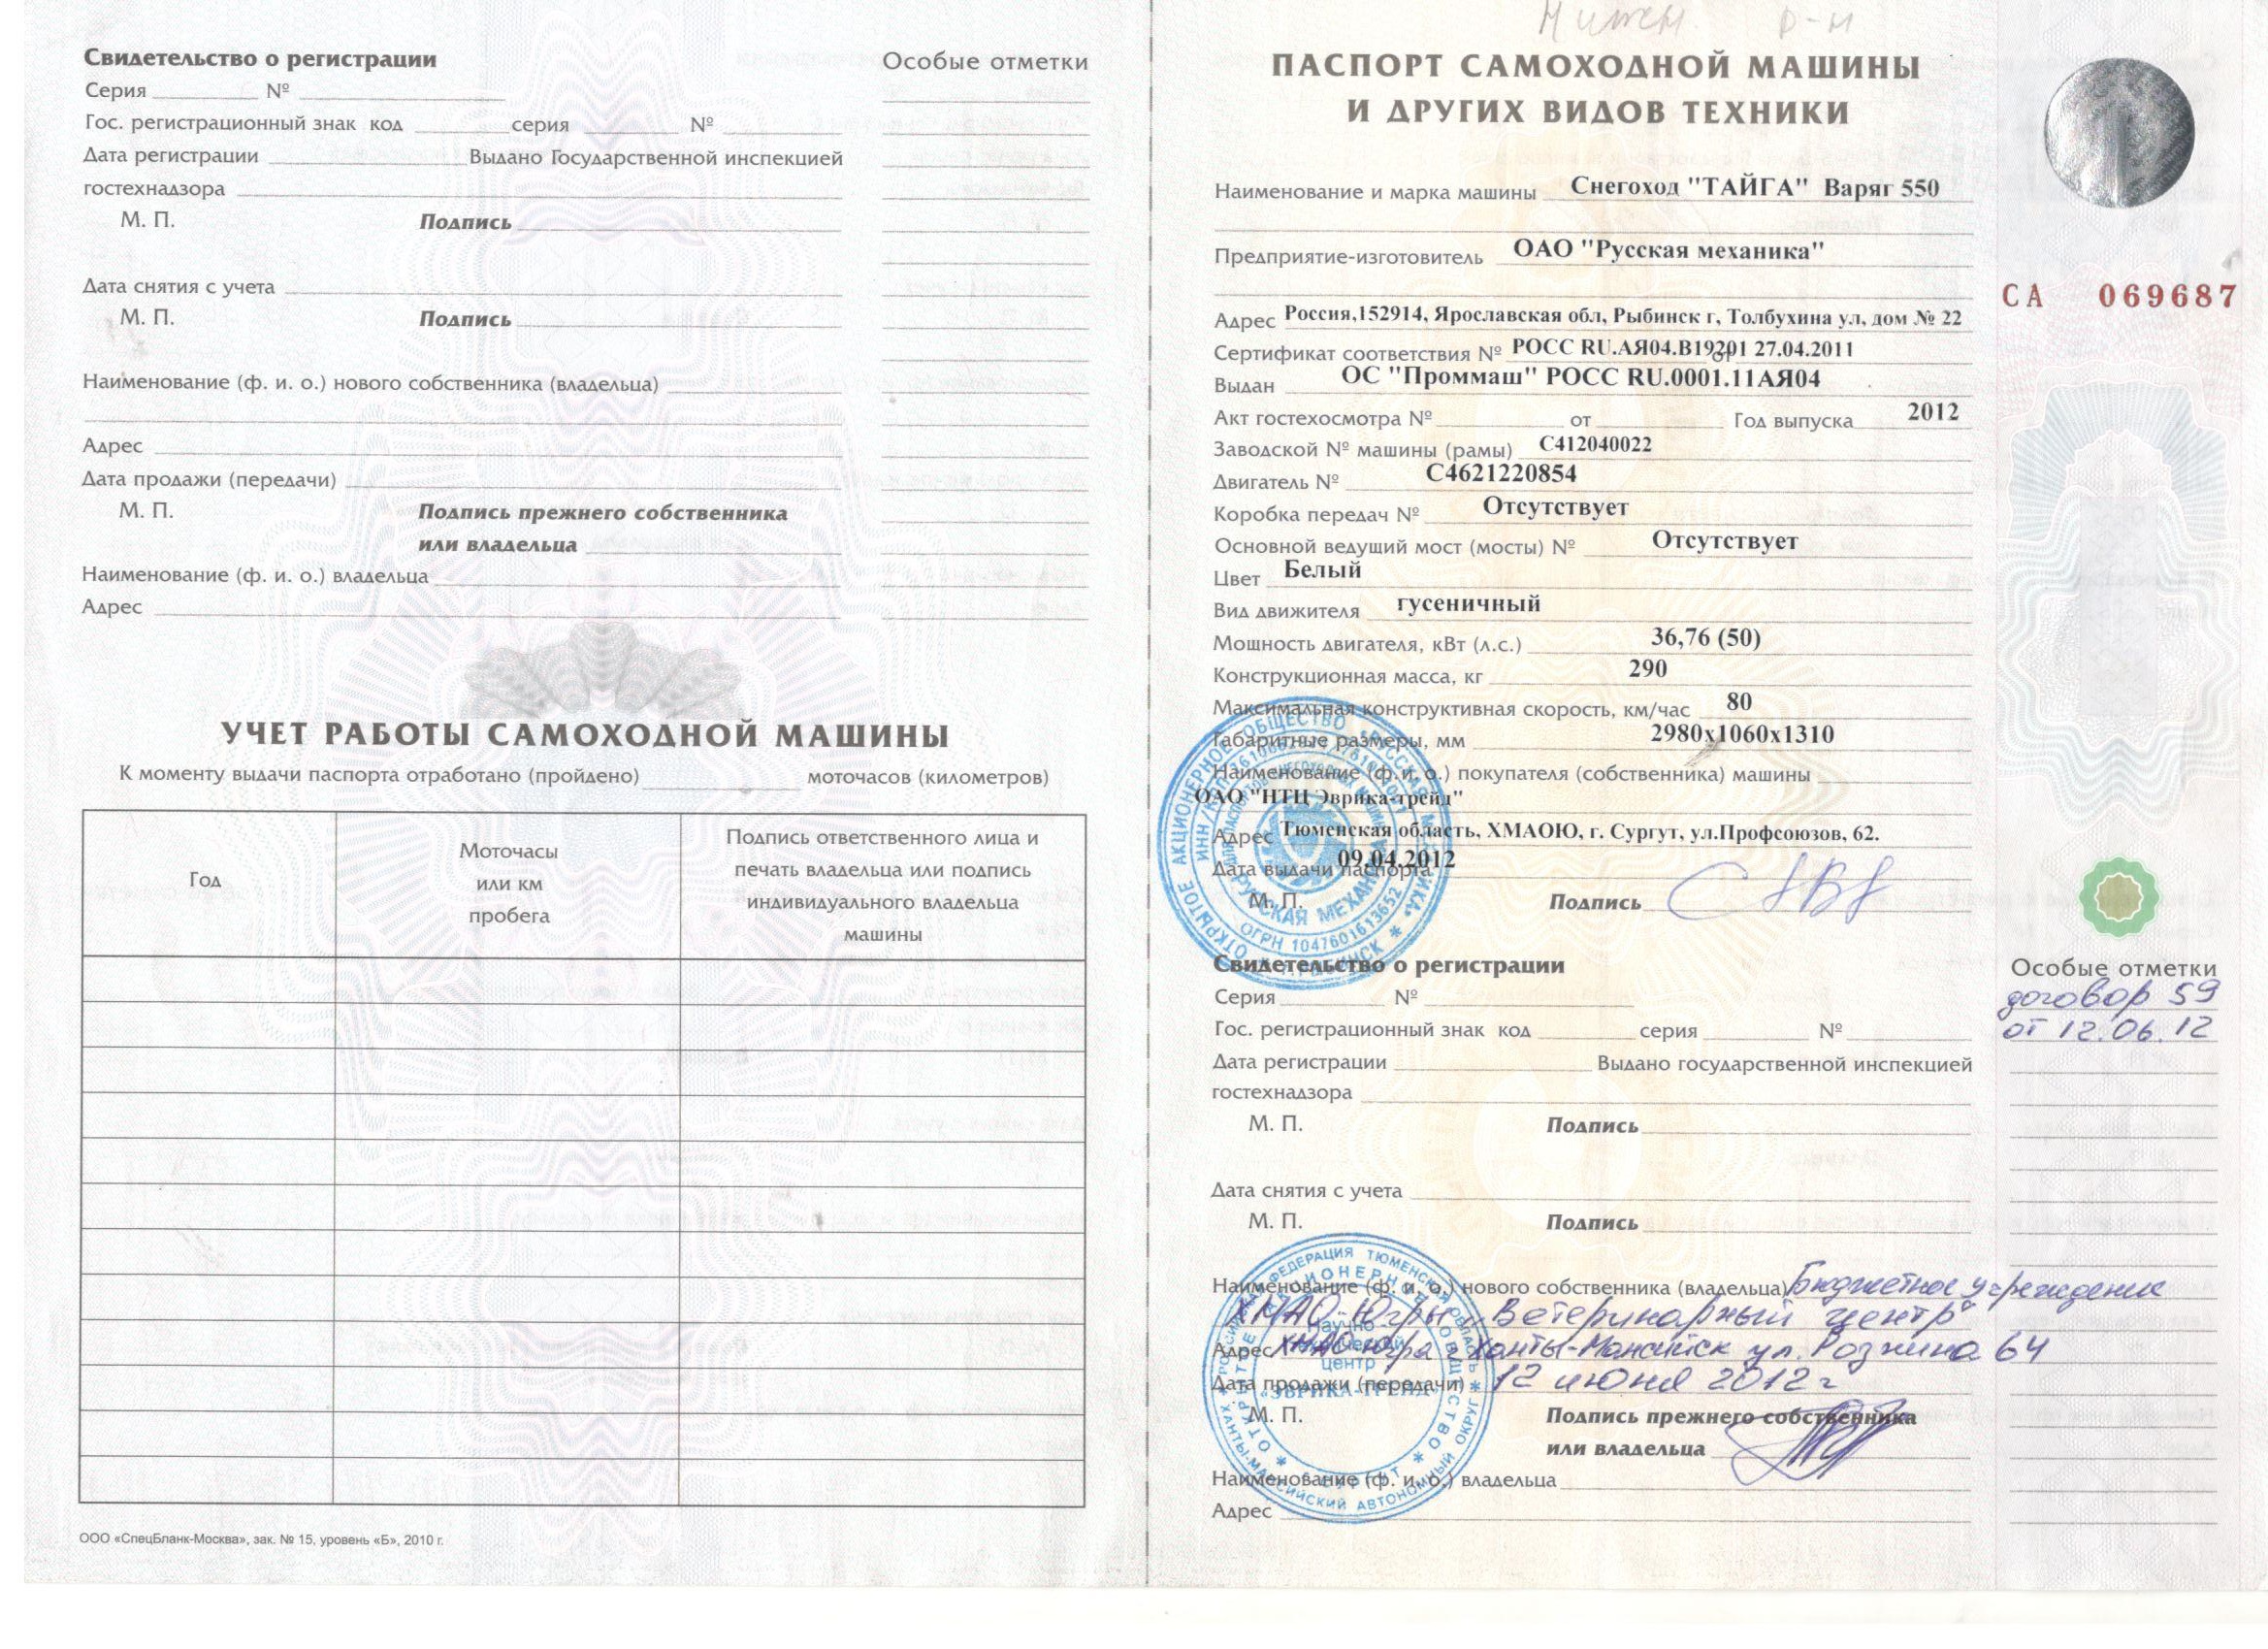 Свидетельство о регистрации
Серия № 
Гос. регистрационный знак код серия №
Дата регистрации Выдано Государственной инспекцией
гостехнадзора
М. П. Подпись
Дата снятия с учета
М. П. Подпись
Наименование (ф. и. о.) нового собственника (владельца)
Адрес
Дата продажи (передачи)
М. П. Подпись прежнего собственника
или владельца
Наименование (ф. и. о.) владельца
Адрес
Особые отметки
УЧЕТ РАБОТЫ САМОХОДНОЙ МАШИНЫ
К моменту выдачи паспорта отработано (пройдено) моточасов (километров)
Год
Моточасы
или км
пробега
Подпись ответственного лица и
печать владельца или подпись
индивидуального владельца
машины
ООО «СпецБланк-Москва», зак. № 15, уровень «Б», 2010 г.
р-н
ПАСПОРТ САМОХОДНОЙ МАШИНЫ
И ДРУГИХ ВИДОВ ТЕХНИКИ
Наименование и марка машины Снегоход "ТАЙГА" Варяг 550
Предприятие-изготовитель ОАО "Русская механика"
СА 069687
Адрес Россия,152914, Ярославская обл, Рыбинск г, Толбухина ул, дом № 22
Сертификат соответствия № РОСС RU.АЯ04.В19201 от 27.04.2011
Выдан ОС "Проммаш" РОСС RU.0001.11АЯ04
Акт гостехосмотра № от Год выпуска 2012
Заводской № машины (рамы) С412040022
Двигатель № С4621220854
Коробка передач № Отсутствует
Основной ведущий мост (мосты) № Отсутствует
Цвет Белый
Вид движителя гусеничный
Мощность двигателя, кВт (л.с.) 36,76 (50)
Конструкционная масса, кг 290
Максимальная конструктивная скорость, км/час 80
Габаритные размеры, мм 2980х1060х1310
Наименование (ф. и. о.) покупателя (собственника) машины
ОАО "НТЦ Эврика-трейд"
Адрес Тюменская область, ХМАОЮ, г. Сургут, ул.Профсоюзов, 62.
Дата выдачи паспорта 09.04.2012
М. П. Подпись
ОТКРЫТОЕ АКЦИОНЕРНОЕ ОБЩЕСТВО «РУССКАЯ МЕХАНИКА»
РУССКАЯ МЕХАНИКА
ОГРН 1047601613652
Свидетельство о регистрации
Серия №
Гос. регистрационный знак код серия №
Дата регистрации Выдано государственной инспекцией
гостехнадзора
М. П. Подпись
Дата снятия с учета
М. П. Подпись
Особые отметки
договор 59
от 12.06.12
Наименование (ф. и. о.) нового собственника (владельца) Бюджетное учреждение
ХМАО-Югры "Ветеринарный центр"
Адрес ХМАО-Югра г. Ханты-Мансийск ул. Рознина 64
Дата продажи (передачи) 12 июня 2012 г
М. П. Подпись прежнего собственника
или владельца
Наименование (ф. и. о.) владельца
Адрес
РОССИЙСКАЯ ФЕДЕРАЦИЯ ТЮМЕНСКАЯ ОБЛАСТЬ ХАНТЫ-МАНСИЙСКИЙ АВТОНОМНЫЙ ОКРУГ
ОТКРЫТОЕ АКЦИОНЕРНОЕ ОБЩЕСТВО
Научно
центр
«ЭВРИКА-ТРЕЙД»
г. СУРГУТ